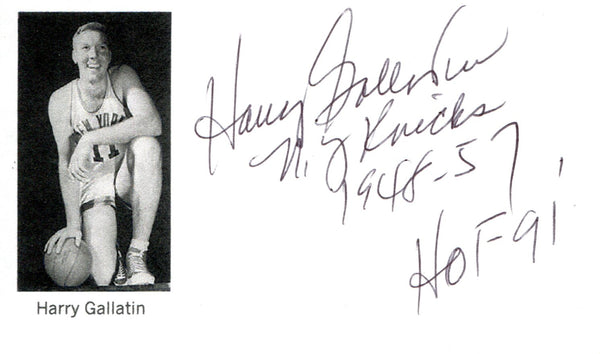 Harry Gallatin
N.Y Knicks
1948-57
HOF-91
NEW YORK
11
Harry Gallatin